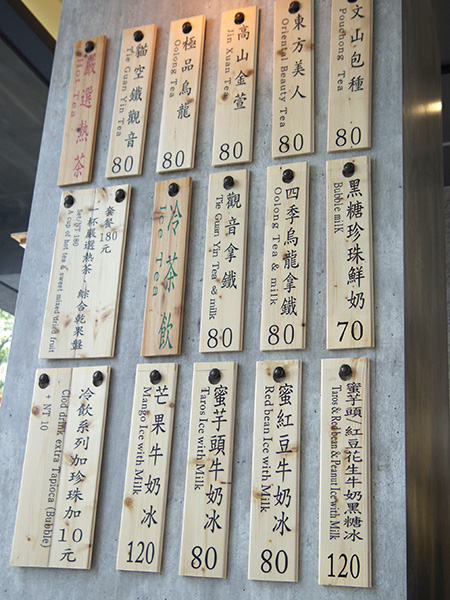 嚴選熱茶
Hot Tea
貓空鐵觀音
Tie Guan Yin Tea
80
極品烏龍
Oolong Tea
80
高山金萱
Jin Xuan Tea
80
東方美人
Oriental Beauty Tea
80
文山包種
Pouchong Tea
80
套餐180元
一杯嚴選熱茶+綜合乾果盤
Set/NT 180
A cup of hot tea & sweet mixed dried fruit
冷茶飲
Ice Tea
觀音拿鐵
Tie Guan Yin Tea & milk
80
四季烏龍拿鐵
Oolong Tea & milk
80
黑糖珍珠鮮奶
Bubble milk
70
冷飲系列加珍珠加10元
Clod drink extra Tapioca (Bubble)
+ NT 10
芒果牛奶冰
Mango Ice with Milk
120
蜜芋頭牛奶冰
Taros Ice with Milk
80
蜜紅豆牛奶冰
Red bean Ice with Milk
80
蜜芋頭/紅豆花生牛奶黑糖冰
Taros & Red bean & Peanut Ice with Milk
120